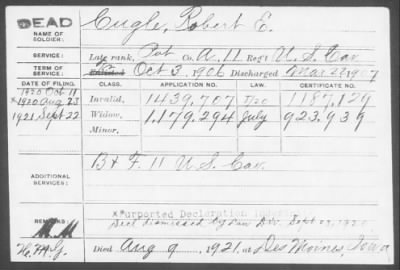 DEAD
NAME OF SOLDIER: Cugle, Robert E.
SERVICE: Late rank, Pvt Co. A, 11 Reg't U.S. Cav
TERM OF SERVICE: Enlisted Oct 3, 1906 Discharged
DATE OF FILING. CLASS. APPLICATION NO. LAW. CERTIFICATE NO.
1920 Oct 11
*1920 Aug 23 Invalid, 1439,707 1187,129
1921 Sept 22 Widow, 1,179,294 July 923,939
Minor,
ADDITIONAL SERVICES: B + F. 11 U.S. Cav.
*Purported Declaration
REMARKS: Decl Dismissed by
Died Aug 9, 1921, at Des Moines, Iowa